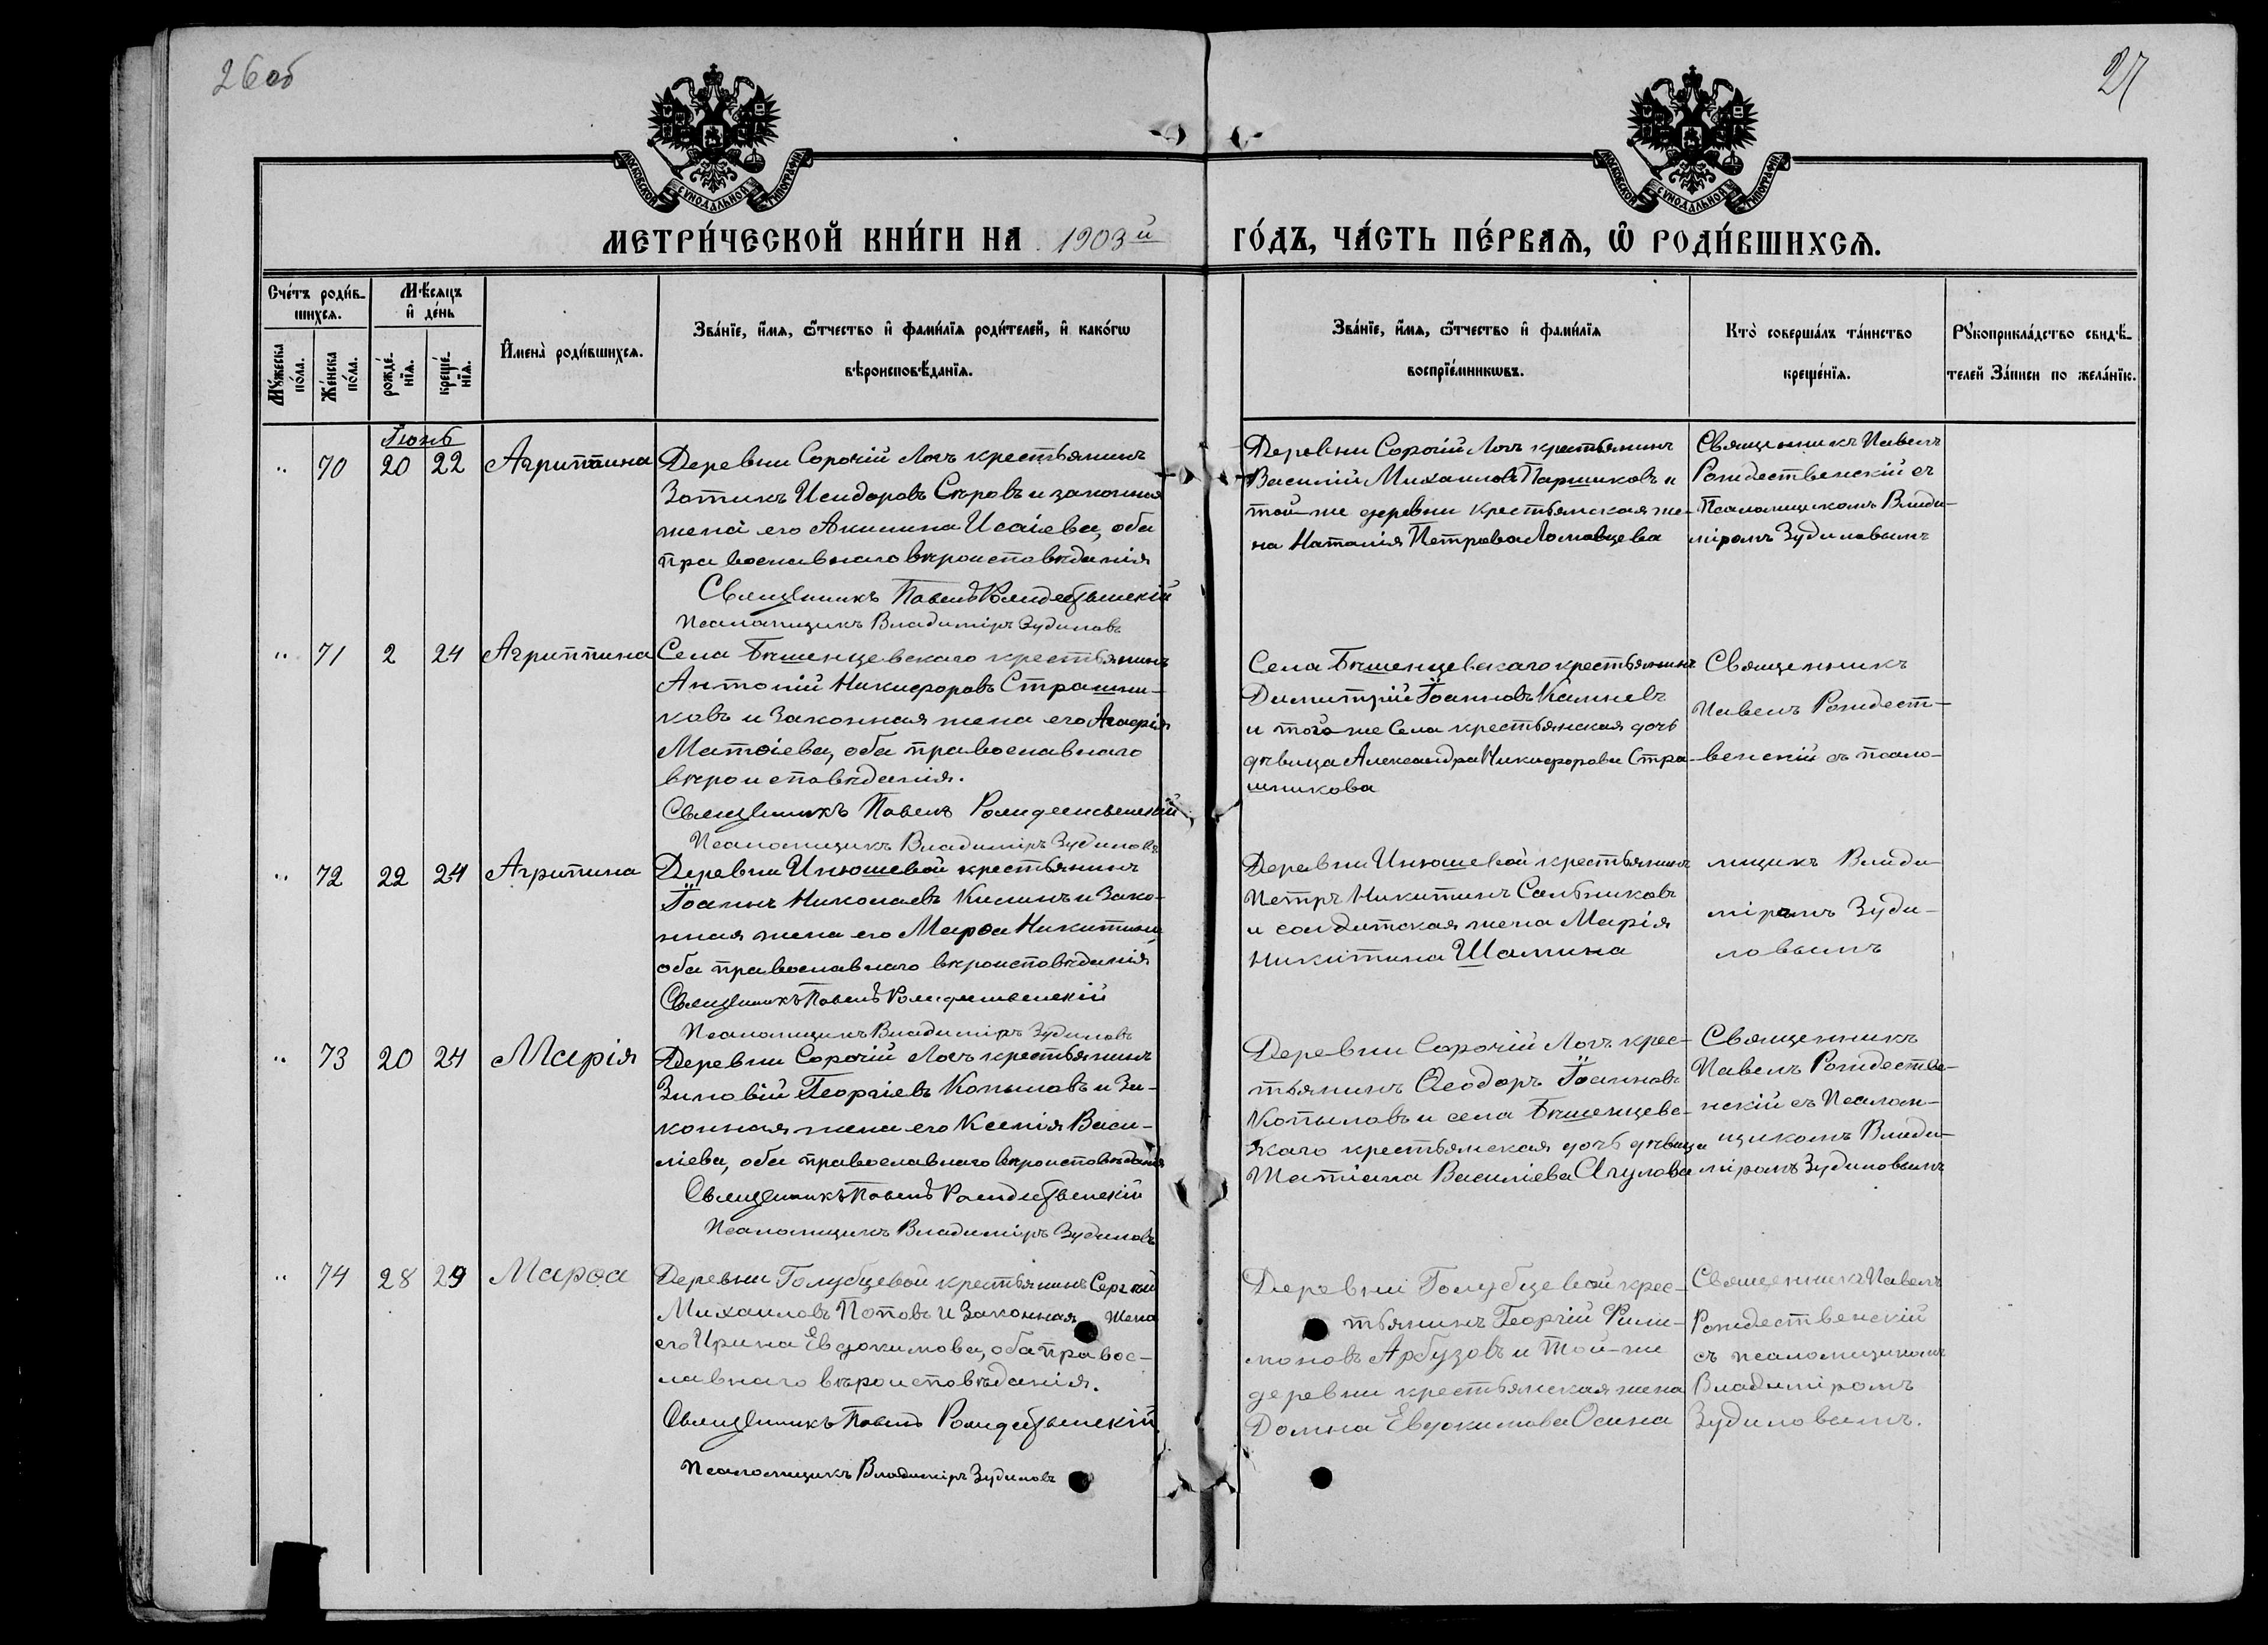 26 об
27
МОСКОВСКОЙ СѴНОДАЛЬНОЙ ТИПОГРАФІИ
МОСКОВСКОЙ СѴНОДАЛЬНОЙ ТИПОГРАФІИ
МЕТРИ́ЧЕСКОЙ КНИ́ГИ НА 1903 й ГО́ДЪ, ЧА́СТЬ ПЕ́РВАѦ, Ѿ РОДИ́ВШИХСѦ.
Сче́тъ роди́в-
шихсѧ.
Мꙋ́жеска по́ла.
Же́нска по́ла.
Мѣ́сѧцъ и де́нь
рожде́-
нїѧ.
креще́-
нїѧ.
Имена̀ роди́вшихсѧ.
Зва́нїе, и́мѧ, ѻ́тчество и фами́лїѧ роди́телей, и како́гѡ
вѣроисповѣ́данїѧ.
Зва́нїе, и́мѧ, ѻ́тчество и фами́лїѧ
воспрїе́мникѡвъ.
Кто̀ соверша́лъ та́инство
креще́нїѧ.
Рꙋкоприкла́дство свидѣ́-
телей за́писи по жела́нїю.
Іюнь
" 70 20 22 Агриппина
Деревни Сорочій Логъ крестьянинъ
Зотикъ Исидоровъ Серовъ и законная
жена его Акилина Исаіева, оба
православнаго вѣроисповѣданія
Священникъ Павелъ Рождественскій
Псаломщикъ Владиміръ Зудиловъ
Деревни Сорочій Логъ крестьянинъ
Василій Михаиловъ Паршиковъ и
той-же деревни крестьянская же-
на Наталія Петрова Ломовцева
Священникъ Павелъ
Рождественскій съ
Псаломщикомъ Влади-
міромъ Зудиловымъ
" 71 2 24 Агриппина
Села Бѣшенцевскаго крестьянинъ
Антоній Никифоровъ Страшни-
ковъ и законная жена его
Матѳіева, оба православнаго
вѣроисповѣданія.
Священникъ Павелъ Рождественскій
Псаломщикъ Владиміръ Зудиловъ
Села Бѣшенцевскаго крестьянинъ
Димитрій Іоанновъ Камневъ
и того же села крестьянская дочь
дѣвица Александра Никифорова Стра-
шникова
Священникъ
Павелъ Рождест-
венскій съ псало-
мщикъ Влади-
міромъ Зуди-
ловымъ
" 72 22 24 Агрипина
Деревни Инюшевой крестьянинъ
Іоаннъ Николаевъ Килинъ и зако-
нная жена его Марѳа Никитина
оба православнаго вѣроисповѣданія
Священникъ Павелъ Рождественскій
Псаломщикъ Владиміръ Зудиловъ
Деревни Инюшевой крестьянинъ
Петръ Никитинъ Сальниковъ
и солдатская жена Марія
Никитина Шамина
" 73 20 24 Марія
Деревни Сорочій Логъ крестьянинъ
Зиновій Георгіевъ Копыловъ и за-
конная жена его Ксенія Васи-
ліева, оба православнаго вѣроисповѣданія
Священникъ Павелъ Рождественскій
Псаломщикъ Владиміръ Зудиловъ
Деревни Сорочій Логъ крес-
тьянинъ Ѳеодоръ Іоанновъ
Копыловъ и села Бѣшенцевс-
каго крестьянская дочь дѣвица
Татіана Василіева
Священникъ
Павелъ Рождестве-
нскій съ Псалом-
щикомъ Влади-
міромъ Зудиловымъ
" 74 28 29 Марѳа
Деревни Голубцевой крестьянинъ Сергѣй
Михаиловъ Поповъ и законная жена
его Ирина Евдокимова, оба правос-
лавнаго вѣроисповѣданія.
Священникъ Павелъ Рождественскій
Псаломщикъ Владиміръ Зудиловъ
Деревни Голубцевой крес-
тьянинъ Георгій Фили-
моновъ Арбузовъ и той-же
деревни крестьянская жена
Домна Евдокимова Осина
Священникъ Павелъ
Рождественскій
съ псаломщикомъ
Владиміромъ
Зудиловымъ.